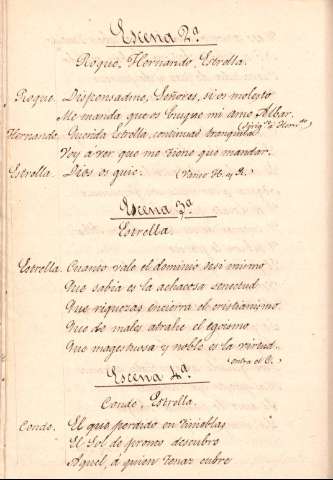 Escena 2ª
Roque, Hernando, Estrella.
Roque. Dispensadme, Señores, si os molesto
Me manda que os busque mi amo Albar.
(dirigᵉ á Hernᵈᵒ)
Hernando. Querida Estrella, continuad tranquila
Voy á ver que me tiene que mandar.
Estrella. Dios os guie. (Vanse H. y R.)
Escena 3ª
Estrella.
Estrella. Cuanto vale el dominio de si mismo
Que sabia es la achacosa senectud
Que riquezas encierra el cristianismo
Que de males atralle el egoismo
Que magestuosa y noble es la virtud.
(entra el C.)
Escena 4ª
Conde, Estrella.
Conde. El que perdido en tinieblas
El Sol de pronto descubre
Aquel, á quien tenaz cubre